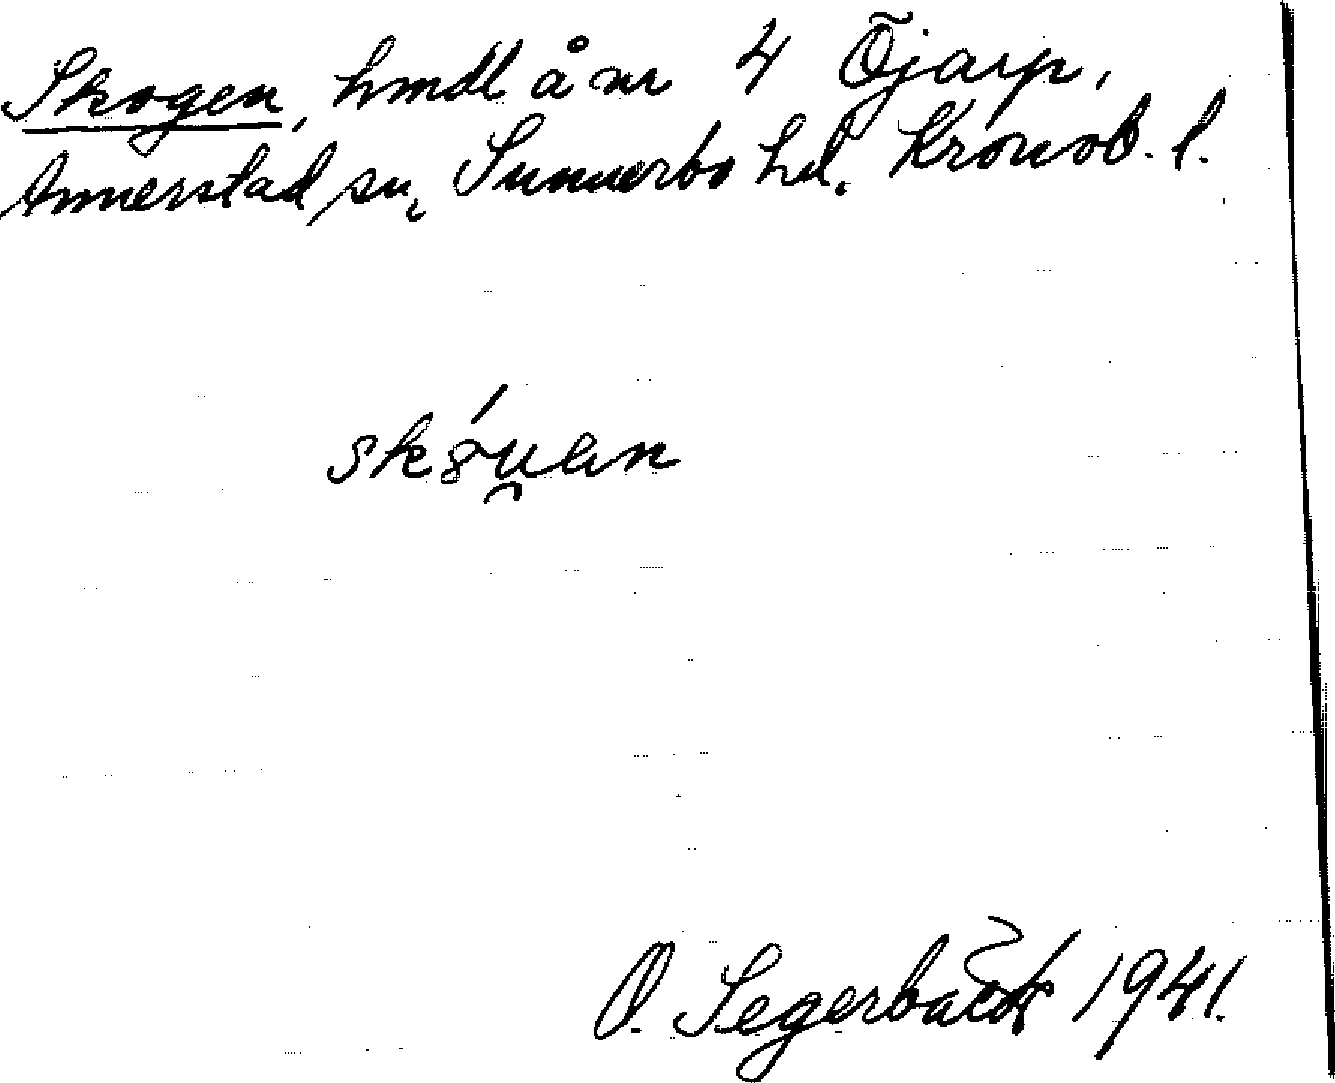 Skogen, hmdl å nr 4 Öjarp,
Annerstad sn, Sunnerbo hd. Kronob. l.
O. Segerbäck 1941.